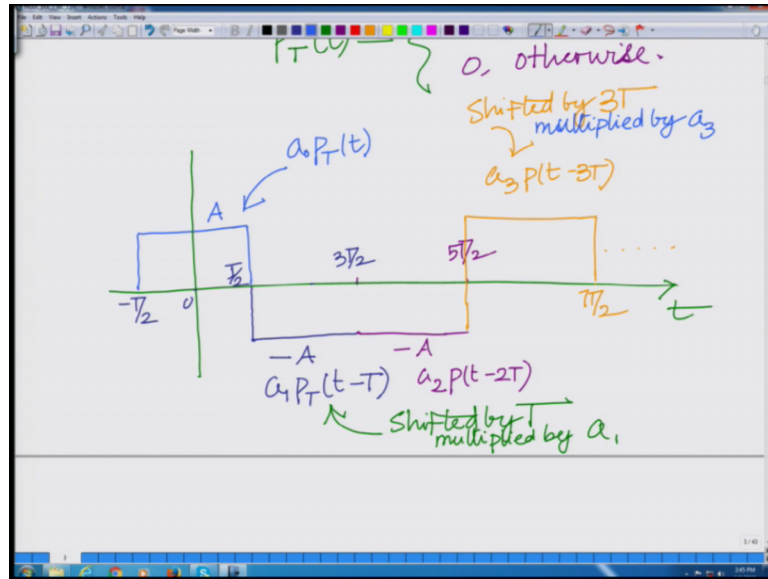 File Edit View Insert Actions Tools Help
Page Width
B I
P_T(t) =
0, otherwise.
Shifted by 3T
multiplied by a₃
a₀P_T(t)
a₃ p(t-3T)
A
-T/2
0
T/2
3T/2
5T/2
7T/2
.......
t
-A
-A
a₁P_T(t-T)
a₂p(t-2T)
Shifted by T
multiplied by a₁
3
2:45 PM